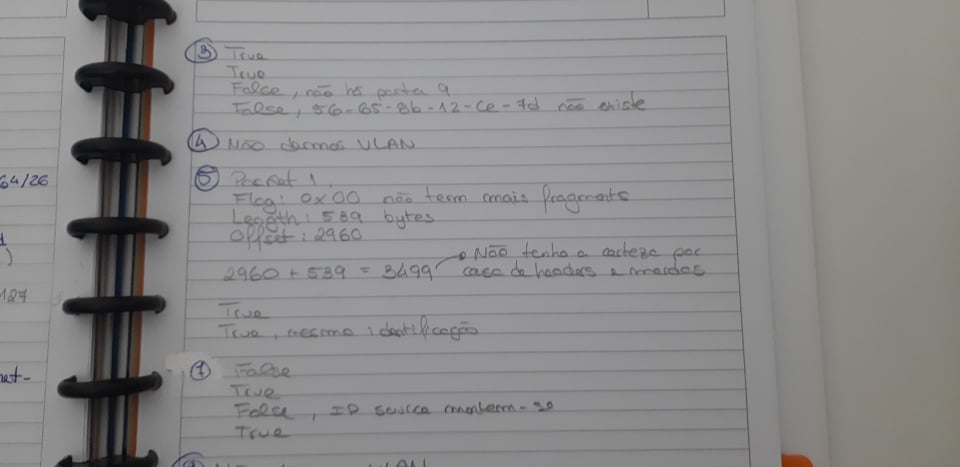 64/26
)
127
net-
③ True
True
False, não há porta 9
False, 56-65-8b-12-ce-7d não existe
④ Não darmos VLAN
⑤ Packet 1
Flag: 0x00 não tem mais fragments
Length: 539 bytes
Offset: 2960
2960 + 539 = 3499 → Não tenho a certeza por
causa de headers e merdas
True
True, mesma identificação
⑦ False
True
False, IP source mantem-se
True
VLAN